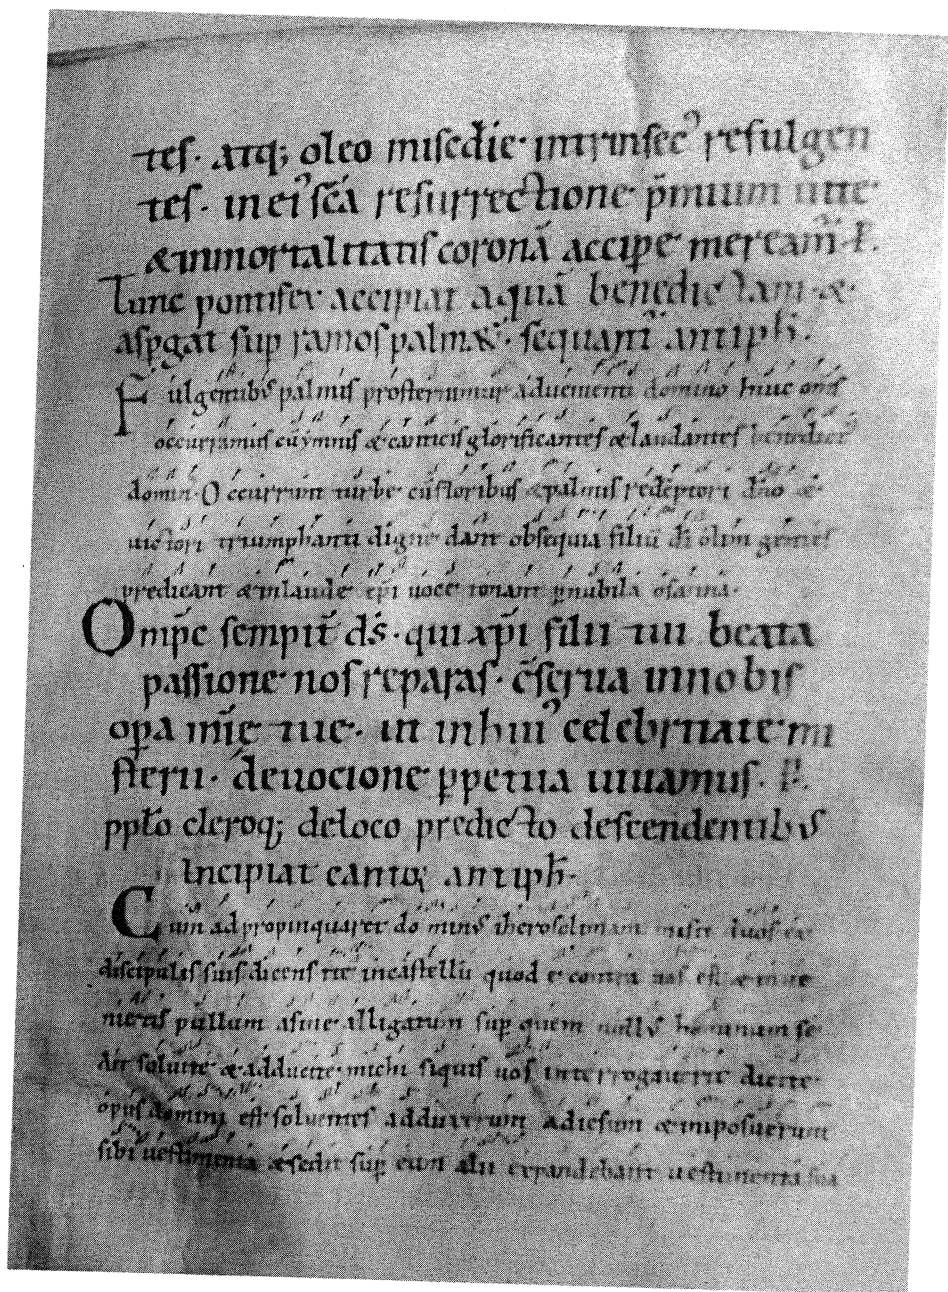 tes· atq; oleo miscd̄ie· intrinsecꝰ refulgen
tes· in eiꝰ sc̄a resurrectione p̄mium uite·
& inmortalitatis coronā accipe meream̄· P.
Tunc pontifex accipiat aquā benedictam· &·
asꝑgat sup ramos palmaꝝ· sequant̄ antiph̄·
Fulgentibꝰ palmis prosternimur aduenienti domino huic om̄s
occurramus cū ymnis & canticis glorificantes & laudantes
domin· Occurrunt turbe cū floribus & palmis redēptori dn̄o &·
uictori triumphanti digne dant obsequia filiū dī olim gentes
predicant & in laude xp̄i uoce tonant ꝑ nubila osanna·
Omp̄c sempit̄ ds̄· qui xp̄i filii tui beata
passione nos reparas· c̄serua in nobis
oꝑa mīe tue· in celebritate mi
sterii· deuocione ꝑpetua uiuamus· P.
pplo cleroq; de loco predicto descendentibus
Incipiat cantor antiph̄·
Cum adpropinquaret dominus iherosolimam misit duos ex
discipulis suis dicens ite in castellū quod contra uos est & inue
nietis pullum asine alligatum suꝑ quem nullꝰ hominum se
dit soluite & adducite michi siquis uos interrogauerit dicite·
opus domini est soluentes adduxerunt ad iesum & imposuerunt
sibi uestimenta & sedit suꝑ eum alii expandebant uestimenta sua